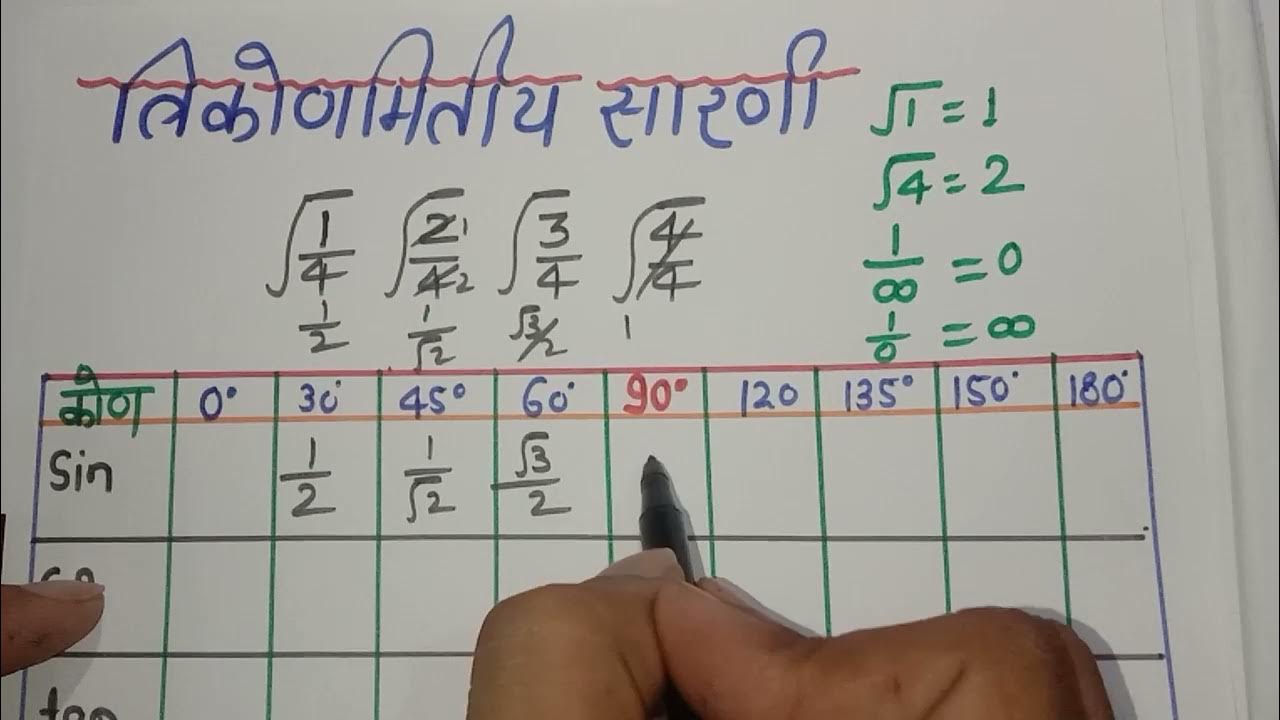 त्रिकोणमितीय सारणी
√1 = 1
√4 = 2
1/∞ = 0
1/0 = ∞
√1/4 √2/4 1 2 √3/4 √4/4
1/2 1/√2 √3/2 1
कोण 0° 30° 45° 60° 90° 120 135° 150° 180°
Sin 1/2 1/√2 √3/2